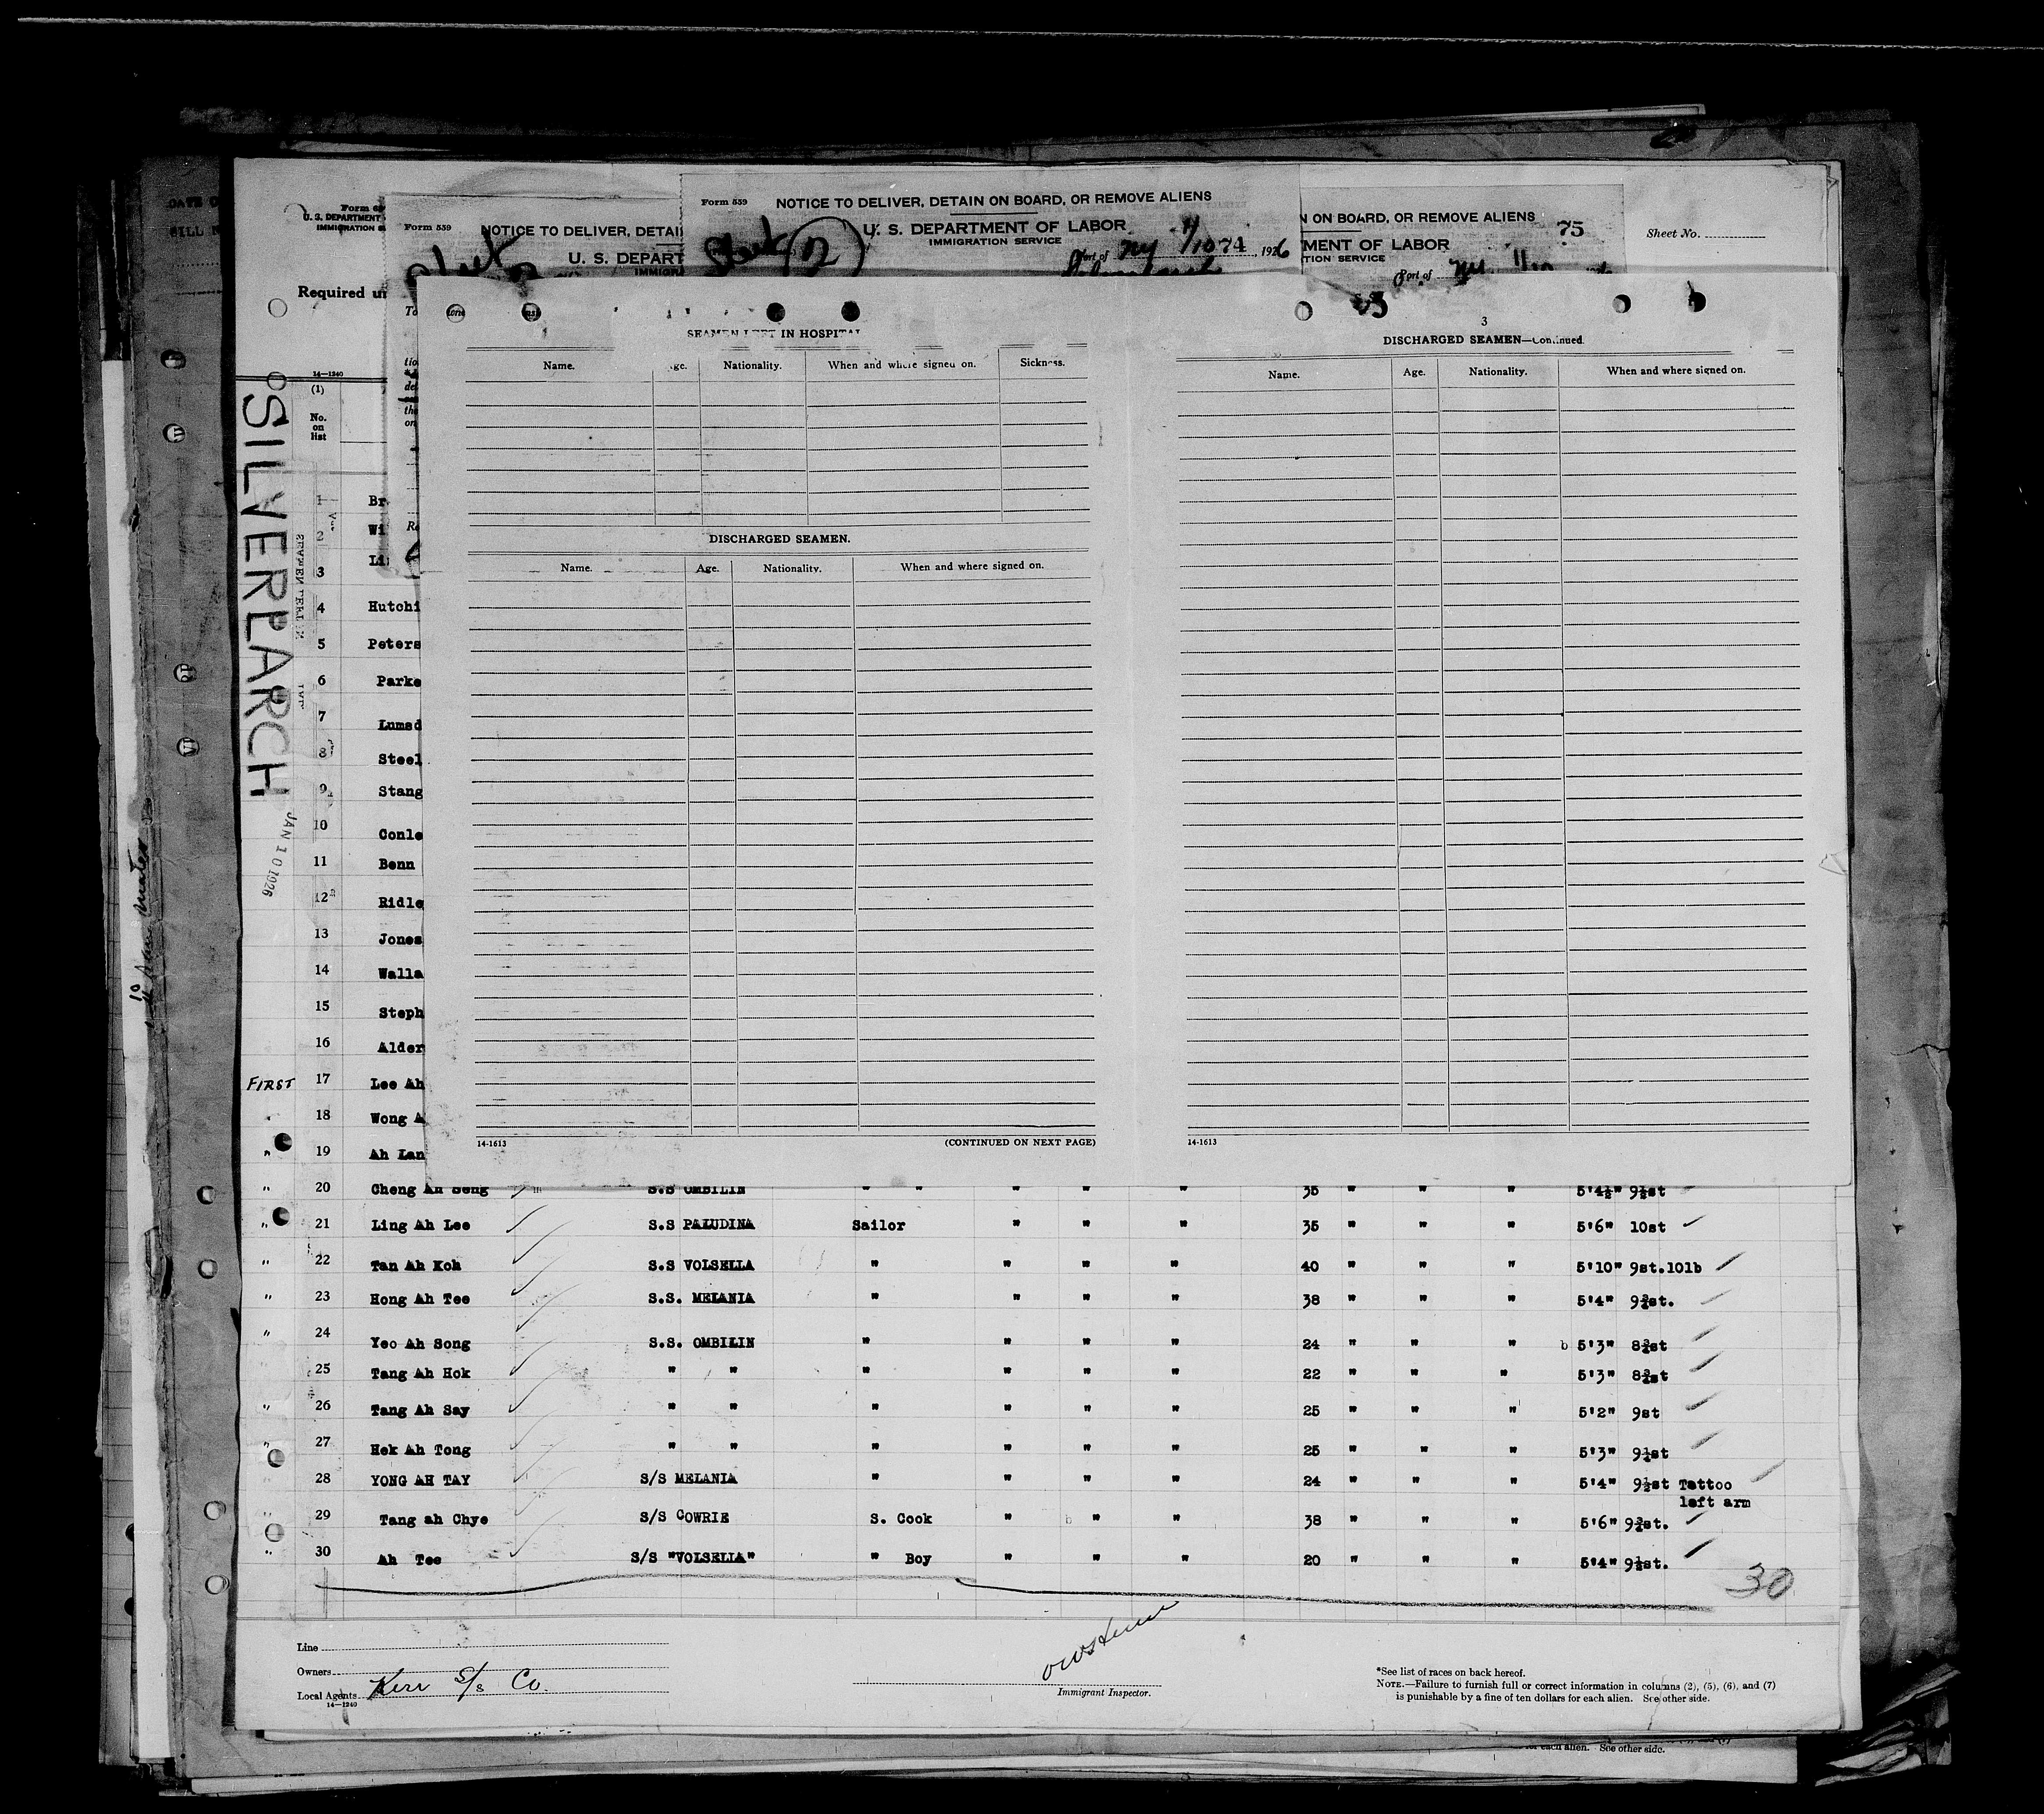 Form 559
NOTICE TO DELIVER, DETAIN ON BOARD, OR REMOVE ALIENS
U. S. DEPARTMENT OF LABOR
IMMIGRATION SERVICE
Port of NY 1/10 74, 1926
Form 559
NOTICE TO DELIVER, DETAI
U. S. DEPART
IMMIGRA
N ON BOARD, OR REMOVE ALIENS
75
MENT OF LABOR
TION SERVICE
Port of
Sheet No.
U. S. DEPARTMENT
IMMIGRATION S
Required un
To
14—1240
(1)
No.
on
list
SILVERLARCH
JAN 10 1926
SEAMEN LEFT IN HOSPITAL
Name. Age. Nationality. When and where signed on. Sickness.
DISCHARGED SEAMEN.
Name. Age. Nationality. When and where signed on.
14-1613 (CONTINUED ON NEXT PAGE)
3
DISCHARGED SEAMEN—Continued
Name. Age. Nationality. When and where signed on.
14-1613
1 Br
2 Wi
3 Li
4 Hutchi
5 Peters
6 Parke
7 Lumsd
8 Steel
9 Stang
10 Conle
11 Benn
12 Ridle
13 Jones
14 Walla
15 Steph
16 Alder
FIRST 17 Lee Ah
" 18 Wong A
" 19 Ah Lan
" 20 Cheng Ah Seng S.S OMBILIN " " " " " 35 " " " 5'4½" 9½st
" 21 Ling Ah Lee S.S PALUDINA Sailor " " " 35 " " " 5'6" 10st
" 22 Tan Ah Koh S.S VOLSELLA " " " " 40 " " " 5'10" 9st.10lb
" 23 Hong Ah Tee S.S. MELANIA " " " " 38 " " " 5'4" 9¾st.
" 24 Yeo Ah Song S.S. OMBILIN " " " " 24 " " " 5'3" 8¾st
25 Tang Ah Hok " " " " " " 22 " " " 5'3" 8¾st
" 26 Tang Ah Say " " " " " " 25 " " " 5'2" 9st
" 27 Hek Ah Tong " " " " " " 25 " " " 5'3" 9½st
28 YONG AH TAY S/S MELANIA " " " " 24 " " " 5'4" 9½st Tattoo
left arm
" 29 Tang ah Chye S/S COWRIE S. Cook " " " 38 " " " 5'6" 9¾st.
" 30 Ah Tee S/S "VOLSELLA" " Boy " " " 20 " " " 5'4" 9½st.
30
Line
Owners
Local Agents Kerr S/s Co.
14—1240
Immigrant Inspector.
*See list of races on back hereof.
NOTE.—Failure to furnish full or correct information in columns (2), (5), (6), and (7)
is punishable by a fine of ten dollars for each alien. See other side.
each alien. See other side.